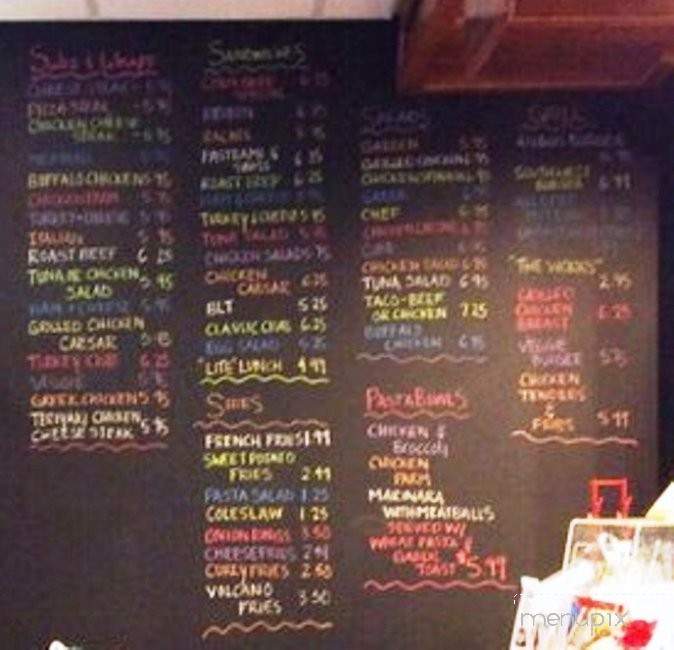 Subs & Wraps
CHEESE STEAK
PIZZA STEAK 5.95
CHICKEN CHEESE
STEAK 5.95
BUFFALO CHICKEN 5.95
CHICKEN PARM 5.95
TURKEY & CHEESE 5.95
ITALIAN 5.95
ROAST BEEF 6.25
TUNA OR CHICKEN
SALAD 5.95
HAM & CHEESE 5.95
GRILLED CHICKEN
CAESAR 5.95
TURKEY CLUB 6.25
VEGGIE
GREEK CHICKEN 5.95
TERIYAKI CHICKEN
CHEESE STEAK 5.95
SANDWICHES
6.25
REUBEN
RACHEL
PASTRAMI &
SWISS 6.25
ROAST BEEF 6.25
HAM & CHEESE
TURKEY & CHEESE 5.95
TUNA SALAD 5.95
CHICKEN SALAD 5.95
CHICKEN
CAESAR 6.25
BLT 5.25
CLASSIC CLUB 6.25
EGG SALAD 5.25
"LITE" LUNCH 4.99
SIDES
FRENCH FRIES 1.99
SWEET POTATO
FRIES 2.99
PASTA SALAD 1.25
COLESLAW 1.25
ONION RINGS 3.50
CHEESE FRIES 2.99
CURLY FRIES 2.50
VOLCANO
FRIES 3.50
SALADS
GARDEN 5.95
GRILLED CHICKEN 6.95
CHICKEN SPINACH 6.95
GREEK
CHEF 6.95
CHICKEN CAESAR 6.95
COBB
CHICKEN SALAD 6.95
TUNA SALAD 6.95
TACO-BEEF
OR CHICKEN 7.25
BUFFALO
CHICKEN 6.95
PASTA BOWLS
CHICKEN &
Broccoli
CHICKEN
PARM
MARINARA
WITH MEATBALLS
SERVED W/
WHEAT PASTA &
GARLIC
TOAST $5.99
GRILL
ANGUS BURGER
SOUTHWEST
BURGER 6.99
"THE WORKS"
2.95
GRILLED
CHICKEN
BREAST 6.25
VEGGIE
BURGER 5.75
CHICKEN
TENDERS
&
FRIES 5.99
menupix